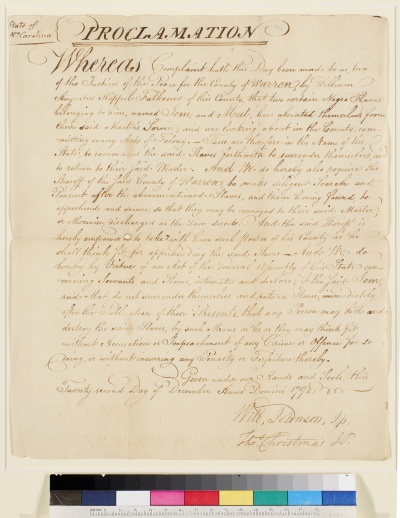 State of
No. Carolina
PROCLAMATION
Whereas Complaint hath this Day been made to us two
of the Justices of the Peace for the County of Warren, by William
Augustus Keppele Falkener of this County, that two certain Negro Slaves
belonging to him, named Tom, and Mat, have absented themselves from
their said Master's Service; and are lurking about in the County, com-
mitting many Acts of Felony. These are therefore in the Name of the
State, to command the said Slaves forthwith to surrender themselves, and
to return to their said Master. And We do hereby also require the
Sheriff of the said County of Warren, to make diligent Search and
Pursuit after the abovementioned Slaves, and them having found, to
apprehend and secure, so that they may be conveyed to their said Master,
or otherwise discharged as the Law directs. And the said Sheriff is
hereby empowered to take with him such Power of his County as he
shall think fit for apprehending the said Slaves. And We do
hereby by Virtue of an Act of the General Assembly of this State con-
cerning Servants and Slaves, intimate and declare, if the said Tom,
and Mat do not surrender themselves and return Home, immediately
after the Publication of these Presents, that any Person may kill and
destroy the said Slaves, by such Means as he or they may think fit,
without Accusation or Impeachment of any Crime or Offence for so
doing, or without incurring any Penalty or Forfeiture thereby.
Given under our Hands and Seals, this
Twenty second Day of December Anno Domini
Will. Johnson, Jp.
Tho. Christmas